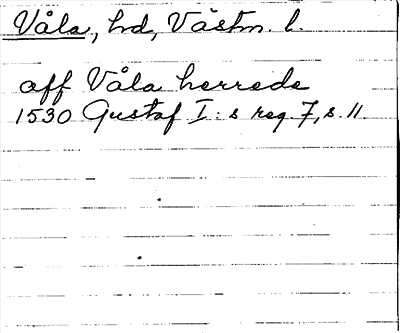 Våla, hd, Västm. l.
aff Våla herrede
1530 Gustaf I:s reg. 7, s. 11.